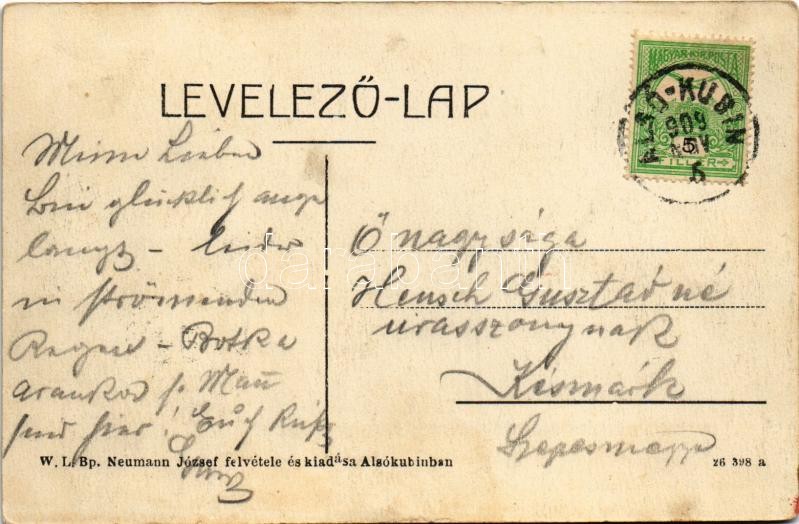 LEVELEZŐ-LAP
MAGYAR KIR. POSTA
5
FILLÉR
ALSÓ-KUBIN
909
5
Meine Lieben
Bin glücklich ange
langt - leider
in strömenden
Regen - Botka
Ő nagysága
Hensch Gusztáv né
úrasszonynak
Késmárk
Szepesmegye
W. L. Bp. Neumann József felvétele és kiadása Alsókubinban
26 398 a
darabanth